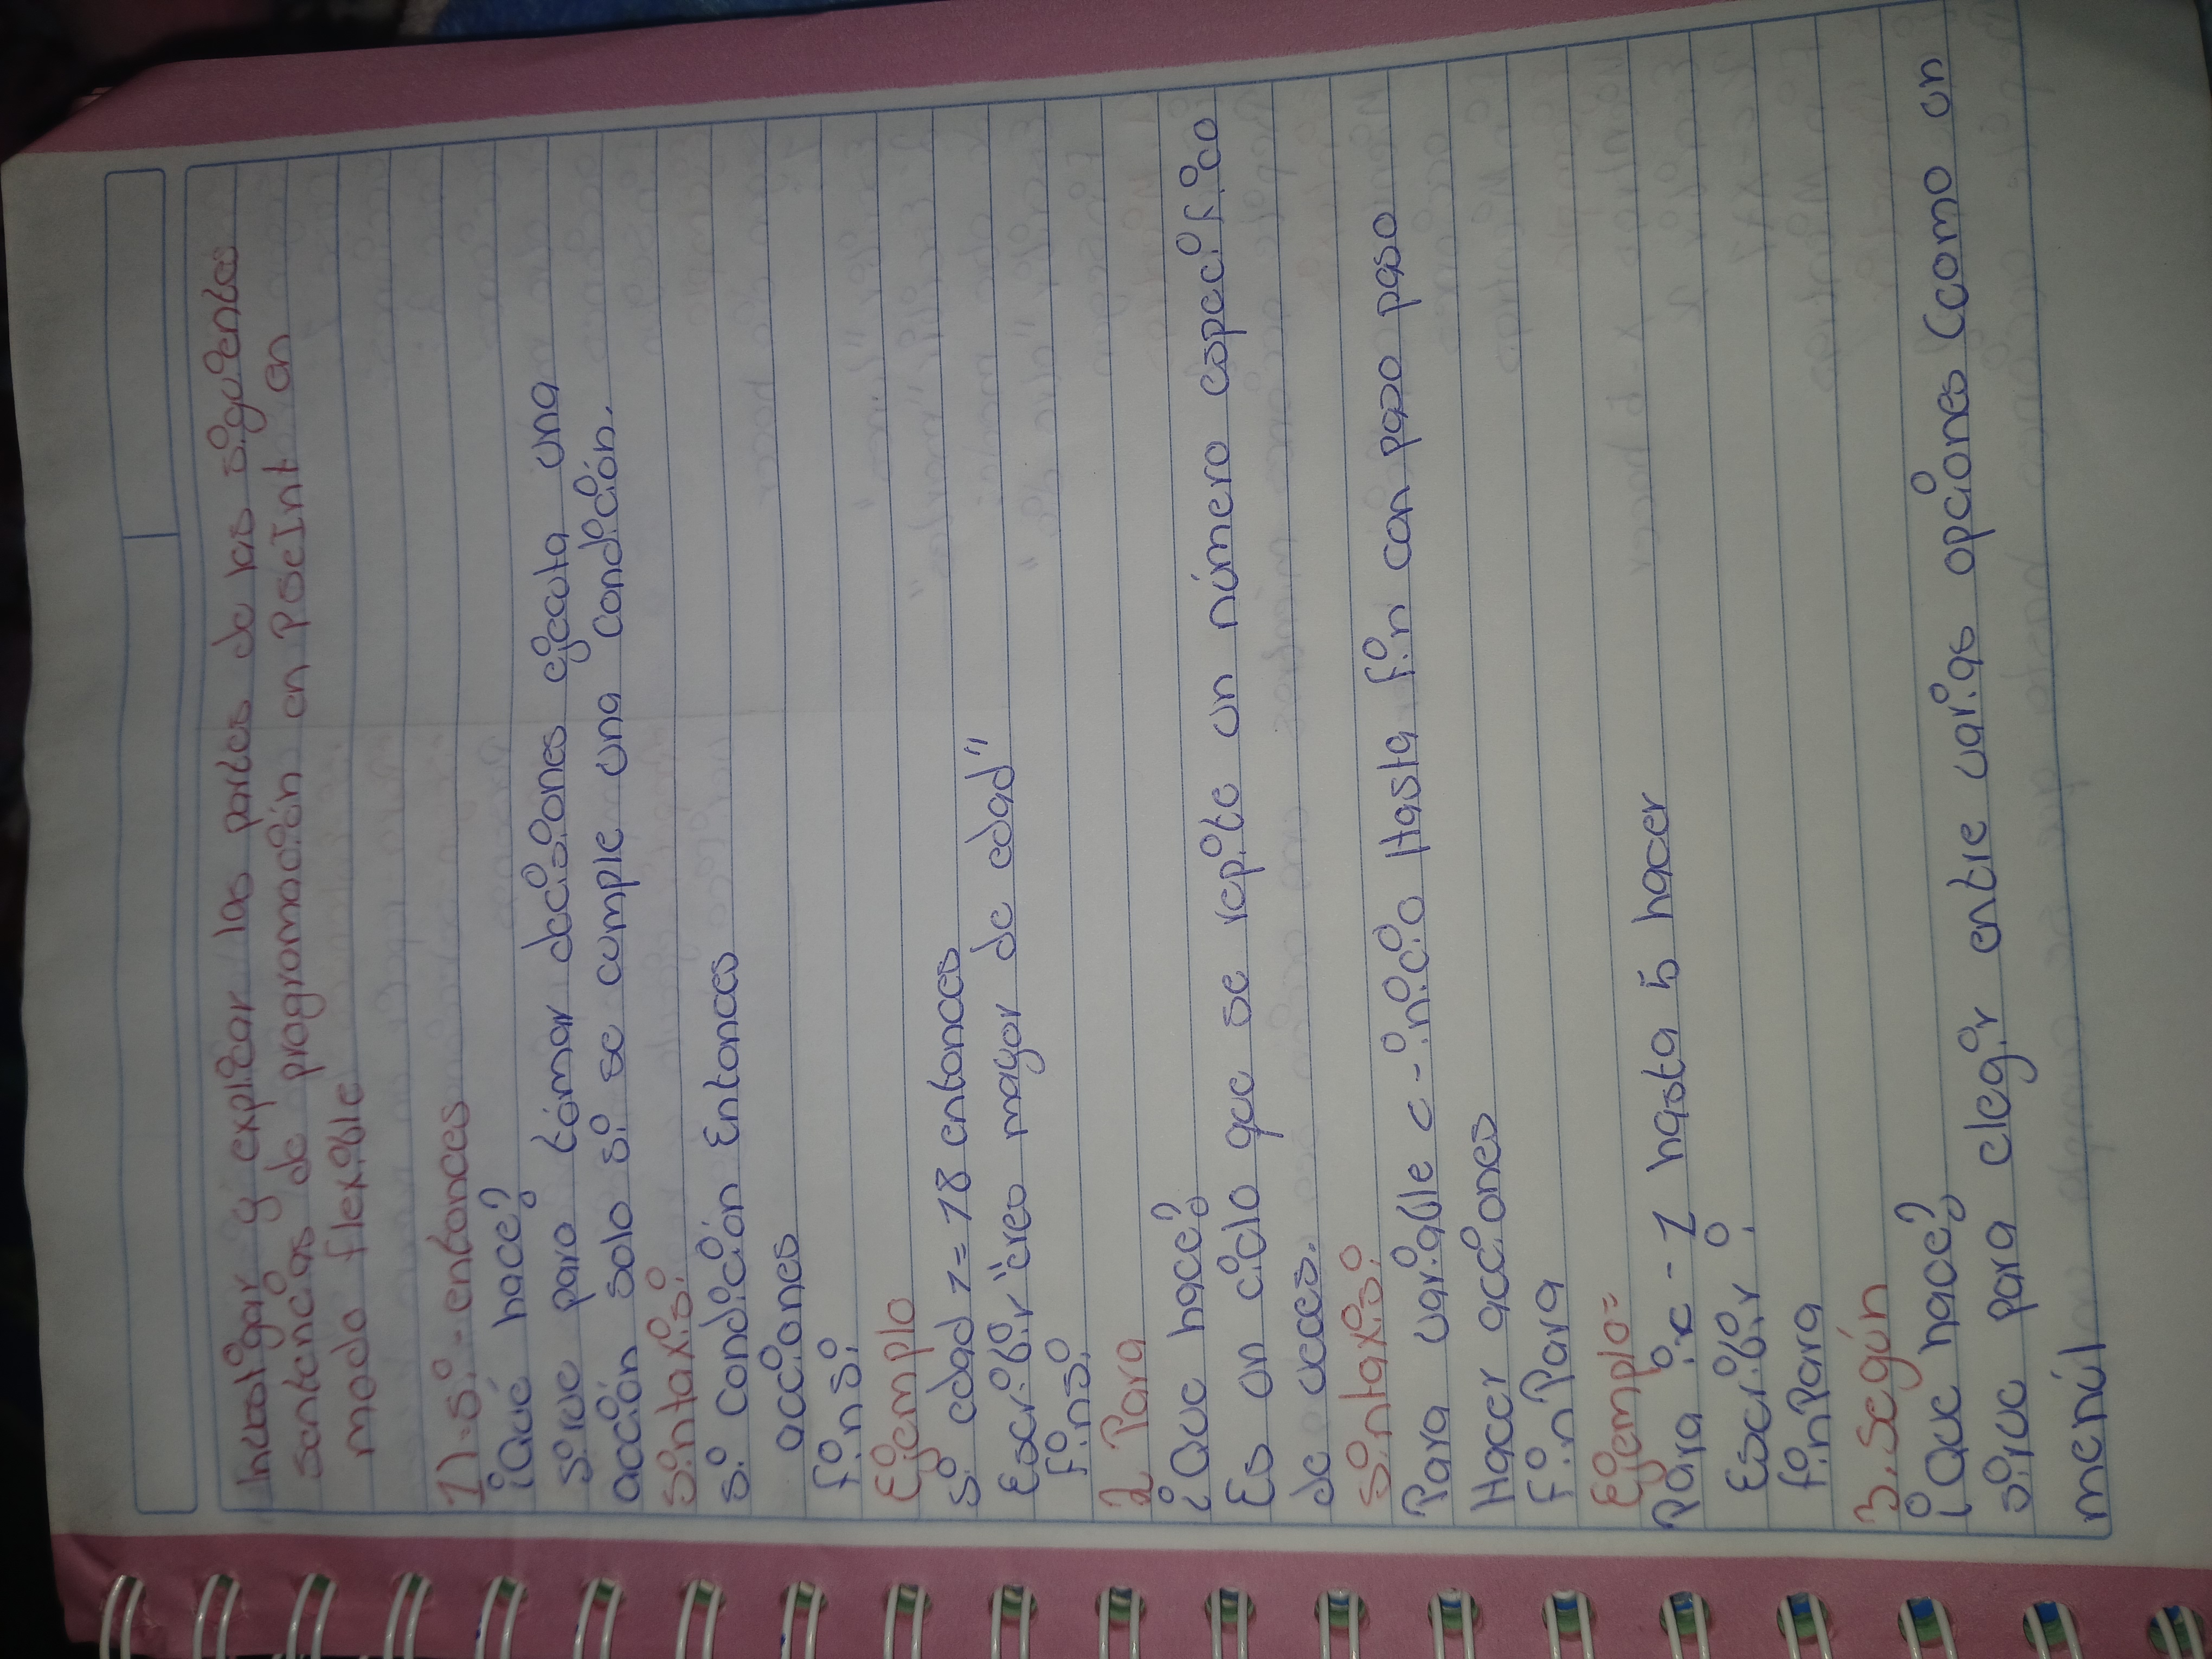 Investigar y explicar las partes de las siguientes
sentencias de programación en PSeInt en
modo flexible
1) si - entonces
¿Qué hace?
sirve para tómar decisiones ejecuta una
acción solo si se cumple una condición.
sintaxis:
si condición Entonces
acciones
finsi
Ejemplo
si edad >= 18 entonces
Escribir "eres mayor de edad"
finsi
2 Para
¿Que hace?
Es un ciclo que se repite un número especifico
de veces.
sintaxis:
Para variable <- inicio Hasta fin con paso paso
Hacer acciones
FinPara
Ejemplo=
Para i<- 1 hasta 5 hacer
Escribir i
finPara
3. según
¿Que hace?
sirve para elegir entre varias opciones (como un
menú)